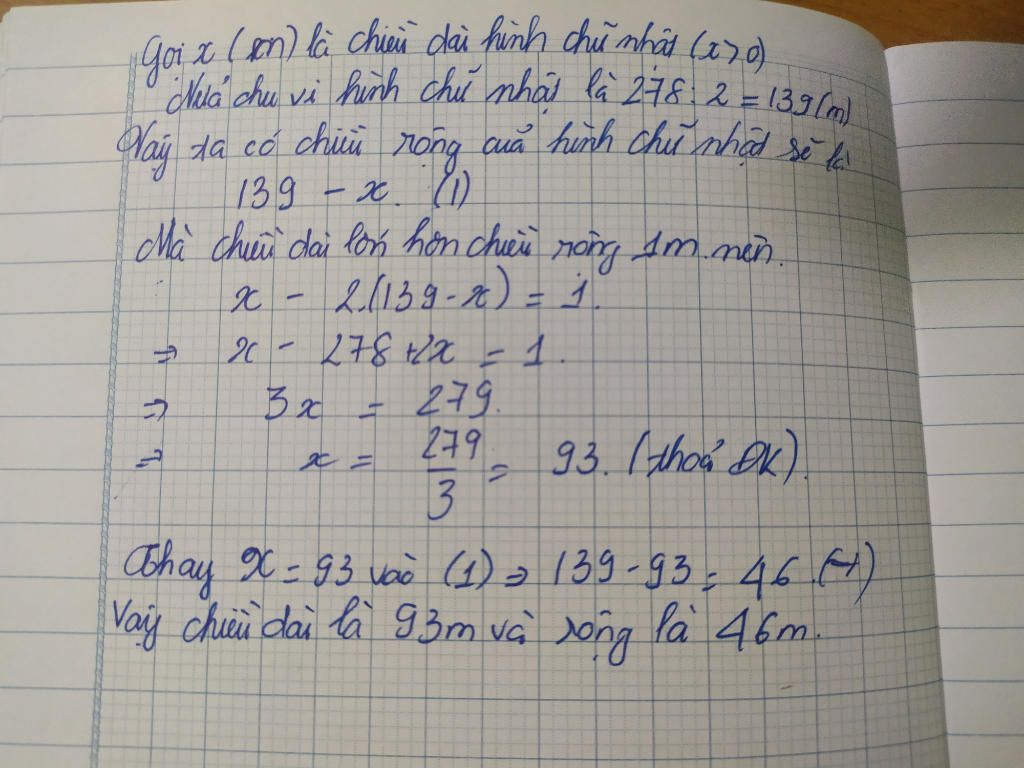 Gọi x (m) là chiều dài hình chữ nhật (x > 0)
Nửa chu vi hình chữ nhật là 278 : 2 = 139 (m)
Vậy ta có chiều rộng của hình chữ nhật sẽ là
139 - x. (1)
Mà chiều dài lớn hơn chiều rộng 1m nên.
x - 2.(139 - x) = 1.
⇒ x - 278 + 2x = 1.
⇒ 3x = 279.
⇒ x = 279/3 = 93. (thoả ĐK).
Thay x = 93 vào (1) ⇒ 139 - 93 = 46
Vậy chiều dài là 93m và rộng là 46m.